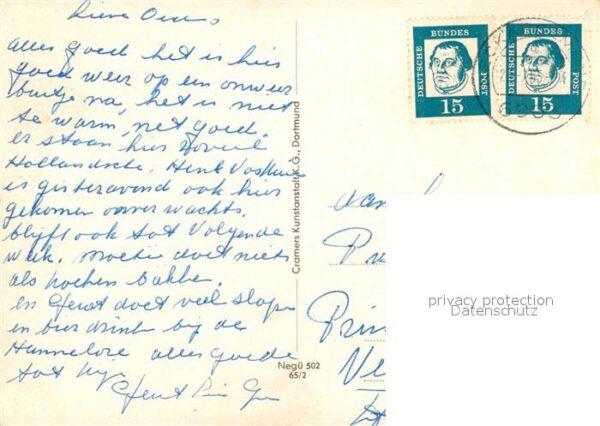 Lieve Ouders,
Alles goed het is hier
goed weer op een onweer
buitje na, het is niet
te warm, net goed.
er staan hier zoveel
Hollandsche. Henk
is gisteravond ook hier
gekomen onverwachts.
blijft ook tot volgende
week. Moetie doet niets
als kochen bakke.
en Gert doet veel slape
en bier drinke bij de
Hannelore alles goede
tot
Gert
Cramers Kunstanstalt K.G., Dortmund
Negü 502
65/2
DEUTSCHE BUNDES POST
15
DEUTSCHE BUNDES POST
15
aan
Prin
Ve
privacy protection
Datenschutz